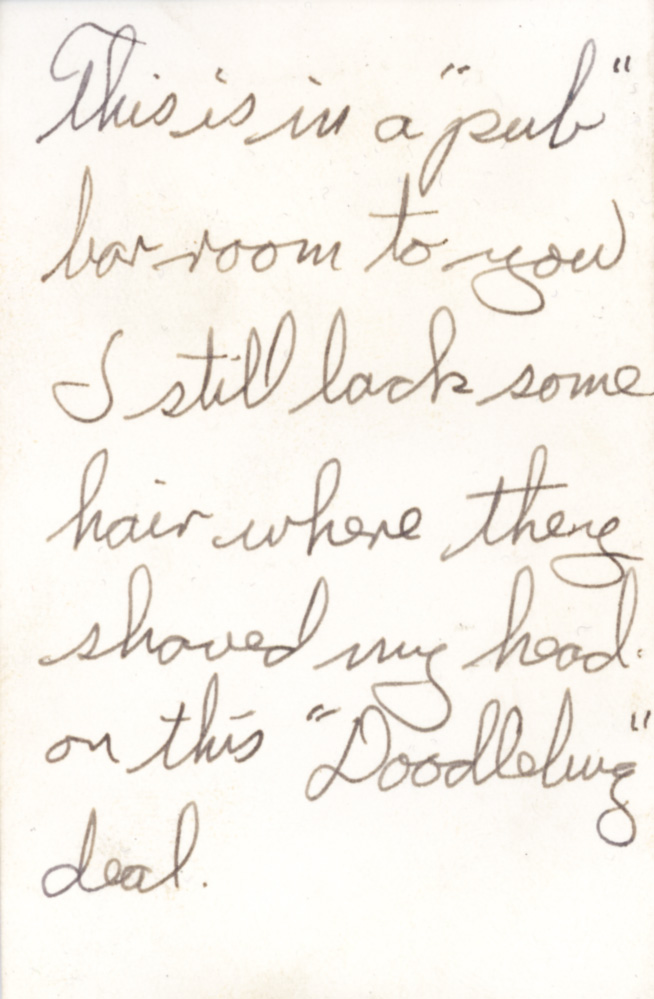 This is in a "pub"
bar room to you
I still lack some
hair where they
shaved my head.
on this "Doodlebug"
deal.